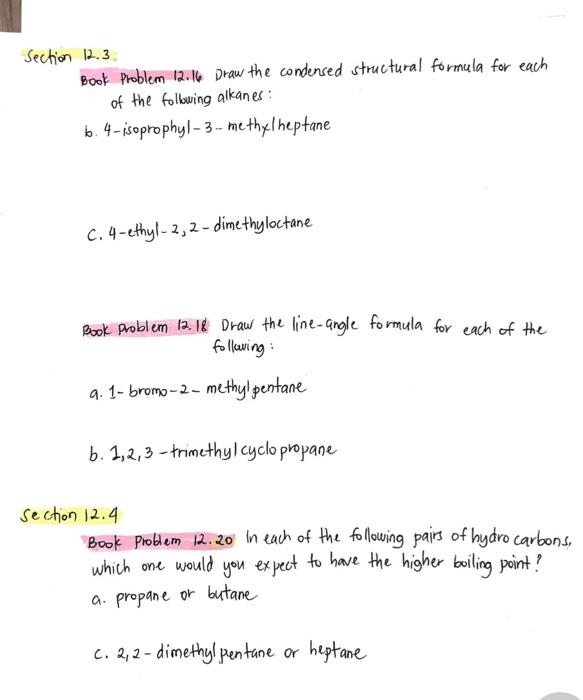 Section 12.3:
Book Problem 12.16 Draw the condensed structural formula for each
of the following alkanes:
b. 4-isoprophyl-3-methylheptane
c. 4-ethyl-2,2-dimethyloctane
Book Problem 12.18 Draw the line-angle formula for each of the
following:
a. 1-bromo-2-methylpentane
b. 1,2,3-trimethylcyclopropane
Section 12.4
Book Problem 12.20 In each of the following pairs of hydrocarbons,
which one would you expect to have the higher boiling point?
a. propane or butane
c. 2,2-dimethylpentane or heptane